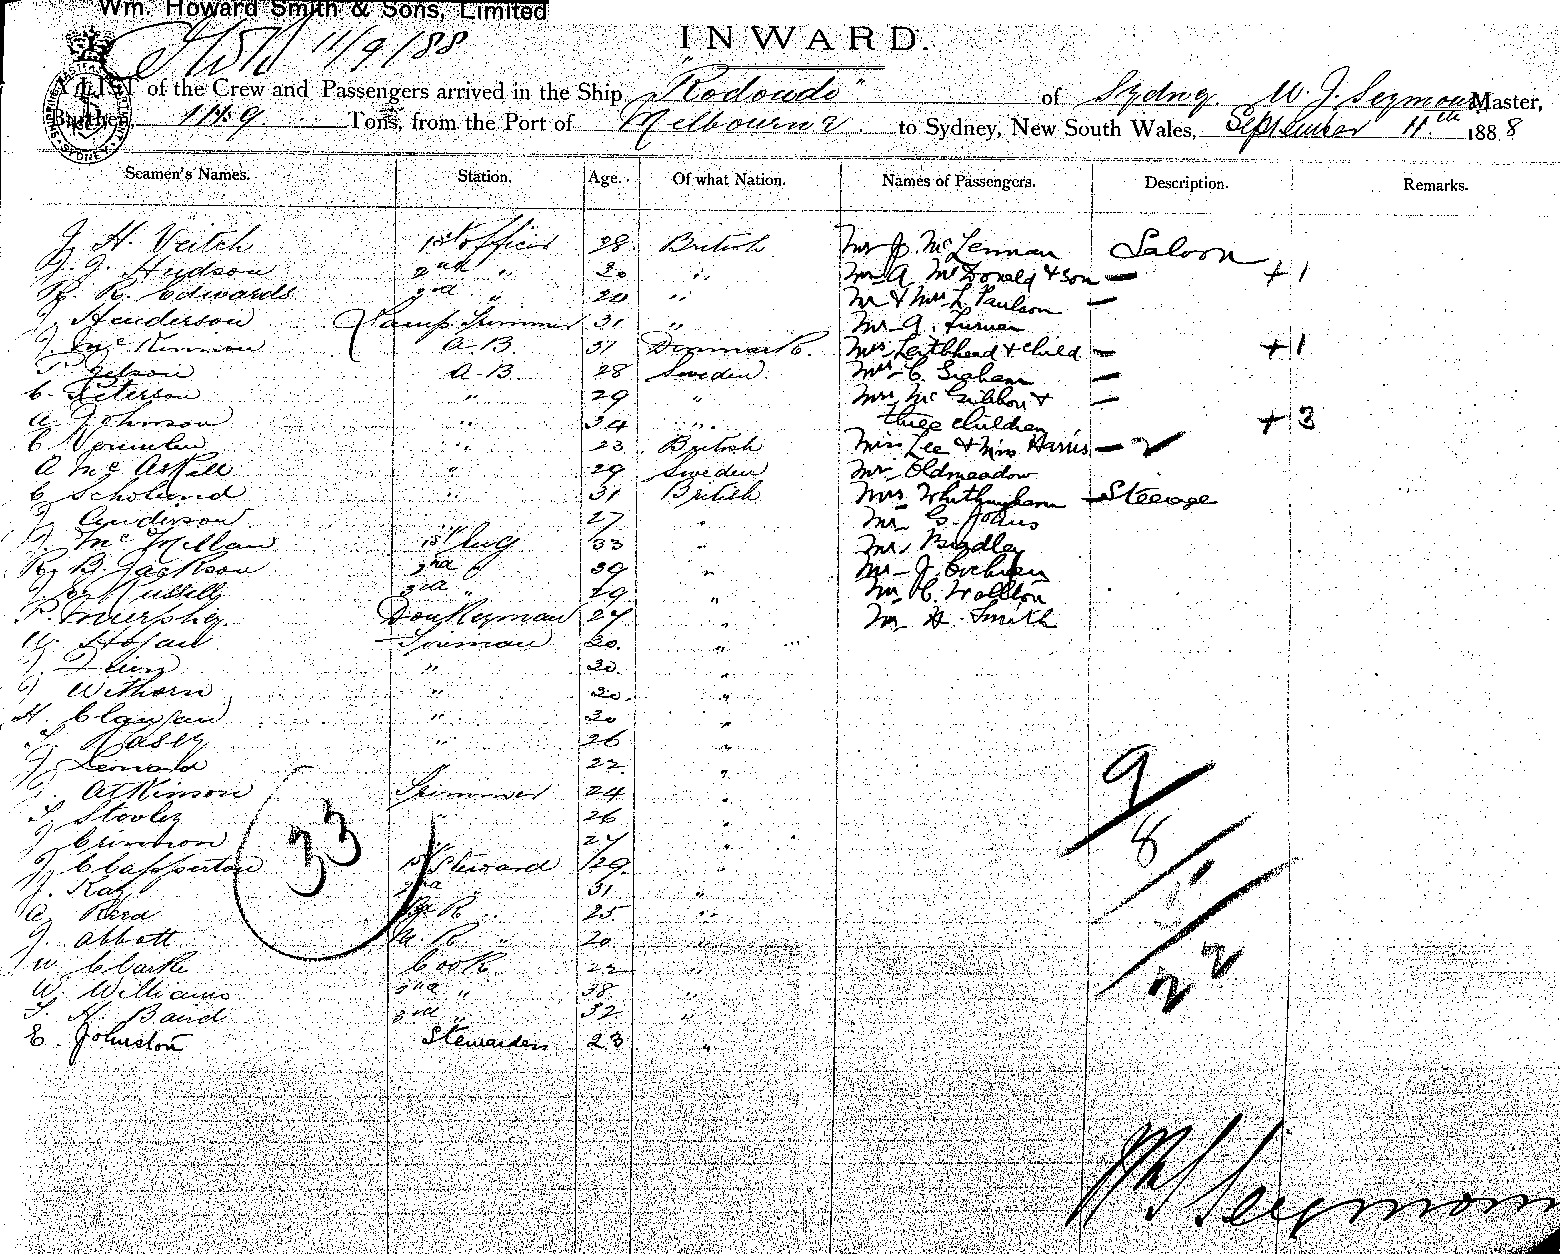 Wm. Howard Smith & Sons, Limited
11/9/88
INWARD.
A LIST of the Crew and Passengers arrived in the Ship "Rodondo" of Sydney W. J. Seymour Master,
Burthen 1119 Tons, from the Port of Melbourne to Sydney, New South Wales, September 11th 1888
Seamen's Names. Station. Age. Of what Nation. Names of Passengers. Description. Remarks.
J. H. Veitch 1st officer 28 British Mr J. McLennan Saloon
J. J. Hudson 2nd " 30 " Mr A McDonald & son — + 1
R. R. Edwards 3rd " 20 " Mr & Mrs L Paulson —
J Henderson Lamp Trimmer 31 " Mr A.
J McKinnon A.B. 31 Denmark. Mrs Laithead & child — + 1
A.B. 28 Sweden Mrs C. Graham —
C. Peterson " 29 " Mrs McGibbon & —
A Johnson " 34 " three children + 3
C " 23 British Miss Lee & Miss Harris — 2
A McAskell " 29 Sweden Mr Oldmeadow
C " 31 British Mrs Whittingham — Steerage
J Anderson 27 " Mr G. Johns
J. McMillan 1st Eng 33 " Mr Bradley
R. B. Jackson 2nd " 39 " Mr J. Cochran
3rd " 29 " Mr C.
P. Murphy Donkeyman 27 " Mr H. Smith
W. Hogan Fireman 20 "
" 30 "
J Withorn " 30 "
H. " 30 "
Kasey " 26 "
J Leonard " 22 "
Atkinson Trimmer 24 " 9
T Stooley " 26 "
J Crimmon 27 " 8
J Clapperton 1st Steward 29 "
J. Kay 2nd " 31 "
A Reid 25 "
J. Abbott 20 "
W Clarke Cook 22 " 22
W. Williams 2nd " 38 "
T. H. Baird 3rd " 32 "
E. Johnston Stewardess 23 "
33
W J Seymour